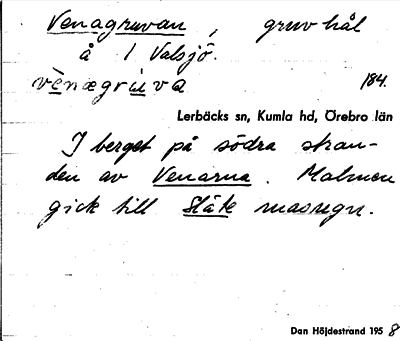 Venagruvan, gruvhål
å 1 Valsjö.
vènægrùva 184.
Lerbäcks sn, Kumla hd, Örebro län
I berget på södra stran-
den av Venarna. Malmen
gick till Skåle masugn.
Dan Höjdestrand 1958